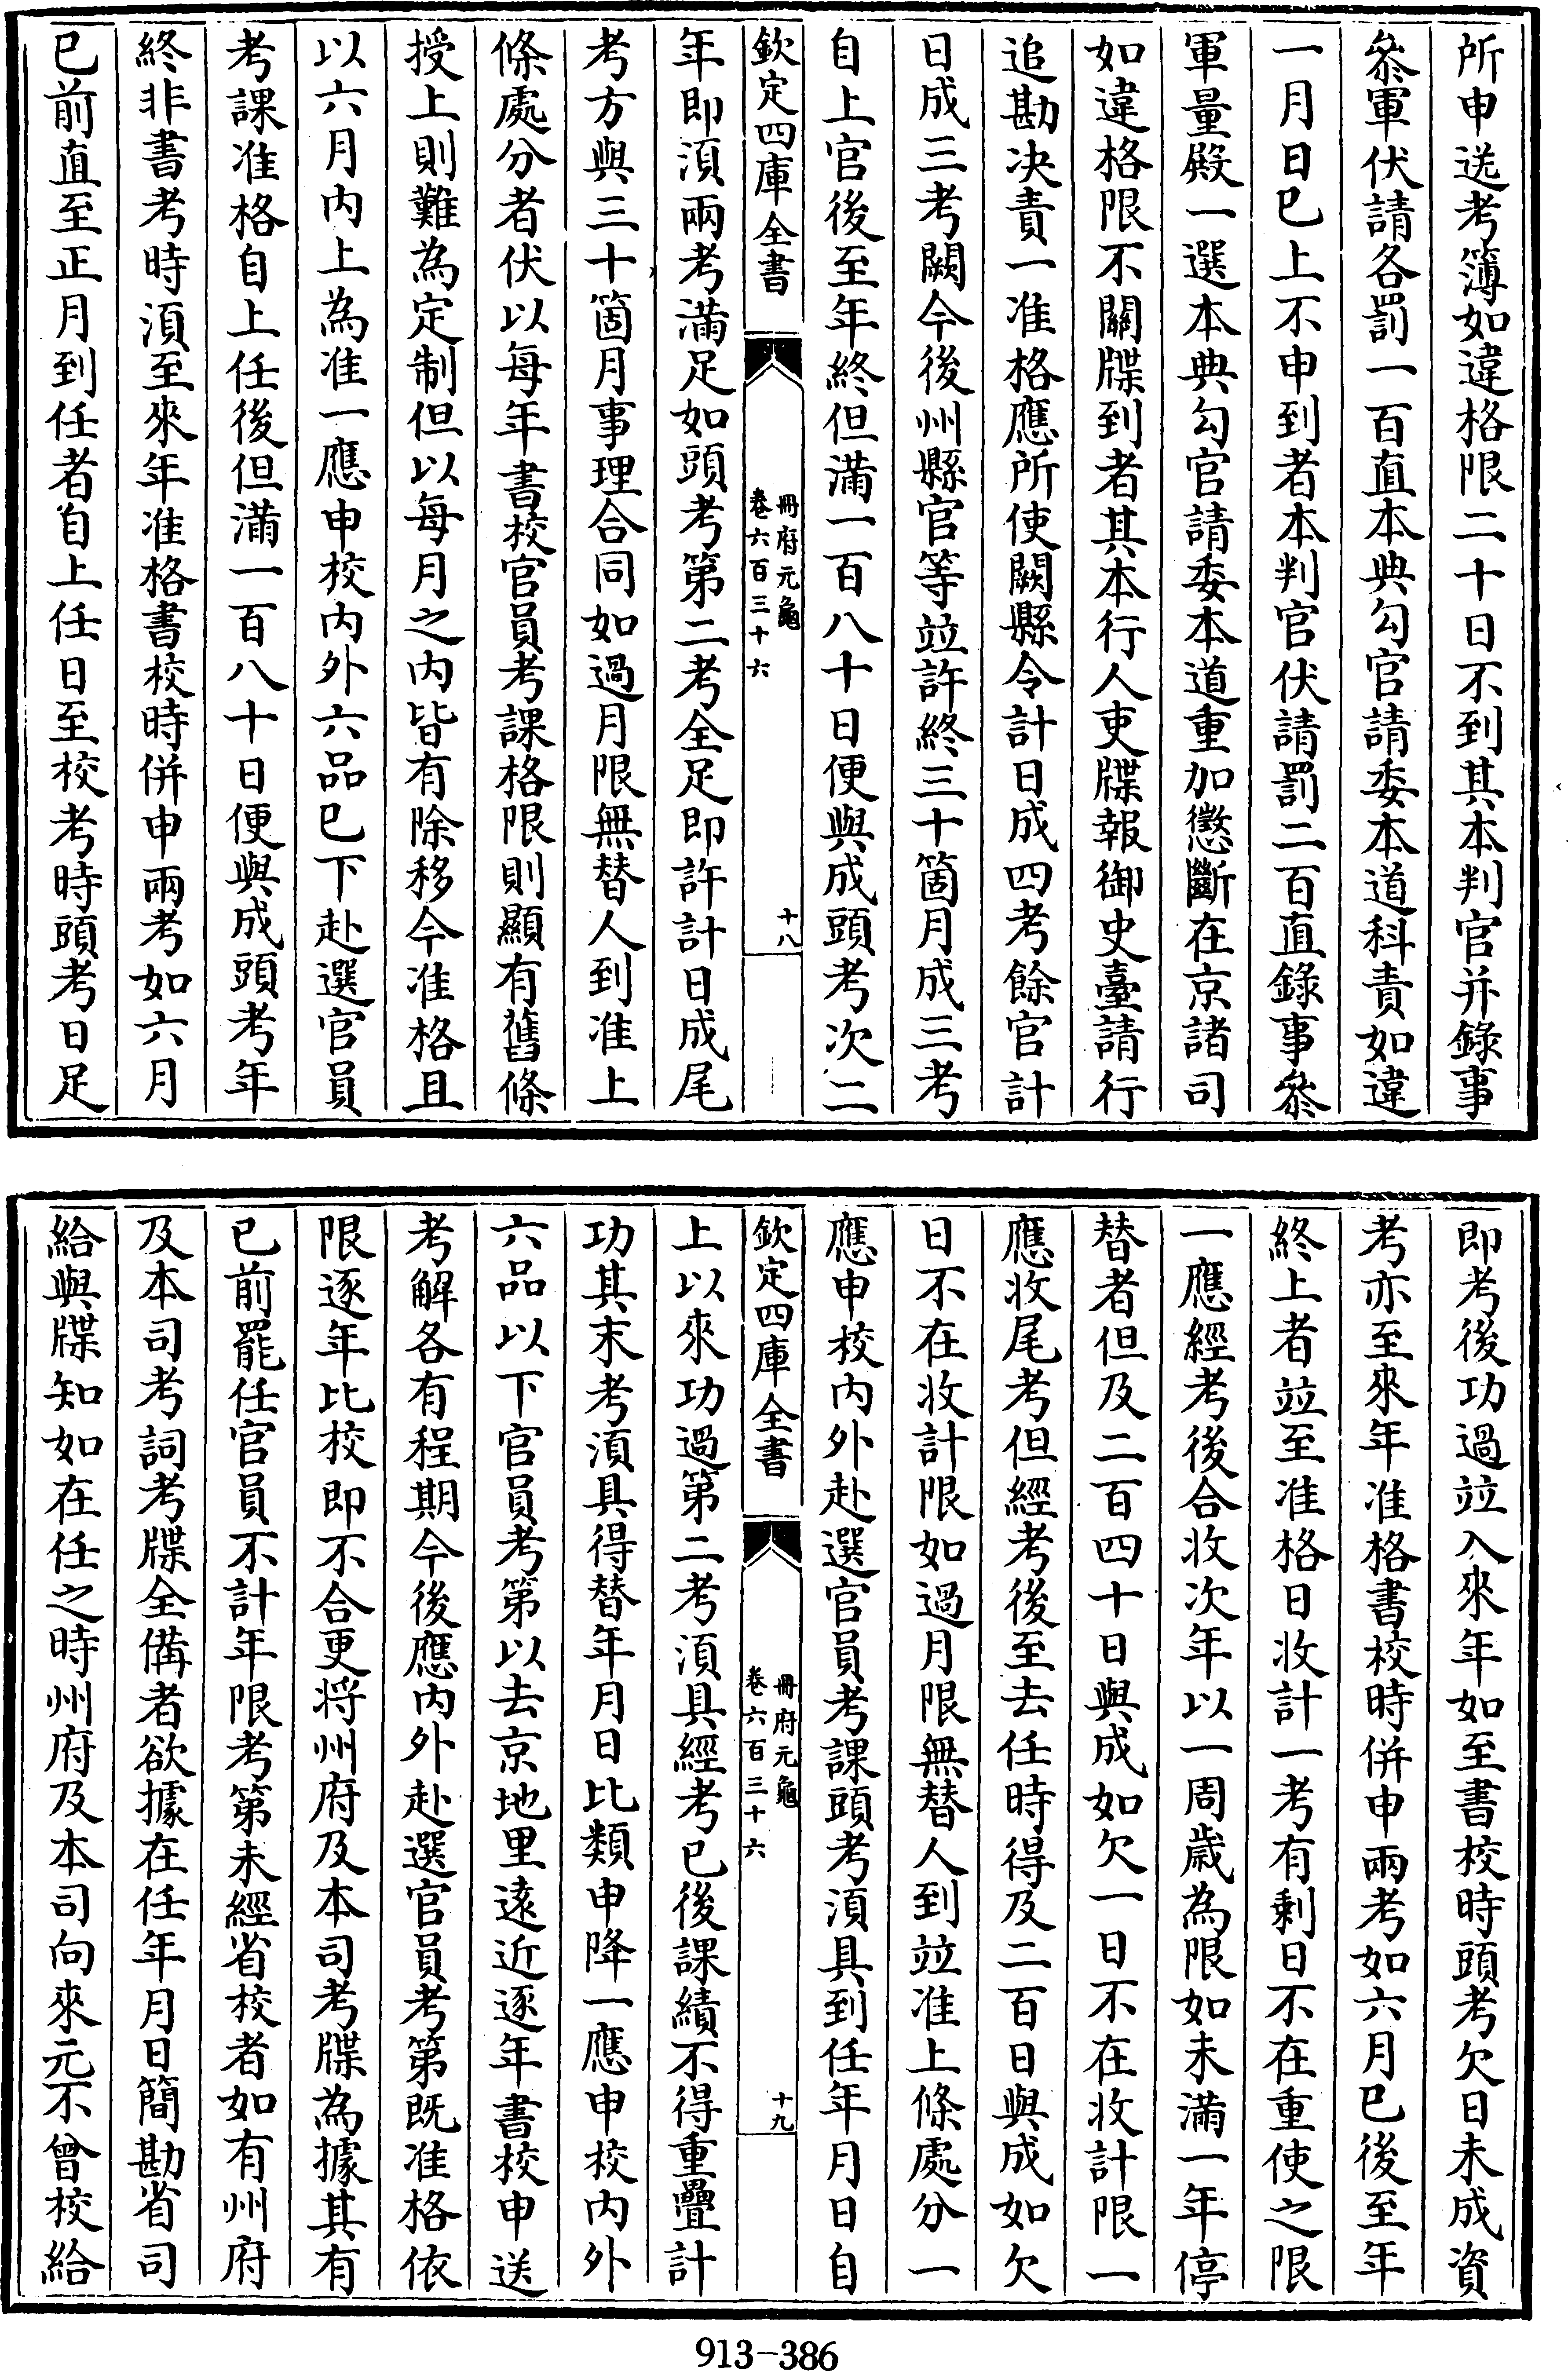 所申送考簿如違格限二十日不到其本判官并錄事
參軍伏請各罰一百直本典勾官請委本道科責如違
一月日已上不申到者本判官伏請罰二百直錄事參
軍量殿一選本典勾官請委本道重加懲斷在京諸司
如違格限不關牒到者其本行人吏牒報御史臺請行
追勘決責一准格應所使闕縣令計日成四考餘官計
日成三考闕今後州縣官等竝許終三十箇月成三考
自上官後至年終但滿一百八十日便與成頭考次二
欽定四庫全書
冊府元龜
卷六百三十六
十八
年即湏兩考滿足如頭考第二考全足即許計日成尾
考方與三十箇月事理合同如過月限無替人到准上
條處分者伏以每年書校官員考課格限則顯有舊條
授上則難為定制但以每月之內皆有除移今准格且
以六月內上為准一應申校內外六品已下赴選官員
考課准格自上任後但滿一百八十日便與成頭考年
終非書考時湏至來年准格書校時併申兩考如六月
已前直至正月到任者自上任日至校考時頭考日足
即考後功過竝入來年如至書校時頭考欠日未成資
考亦至來年准格書校時併申兩考如六月已後至年
終上者竝至准格日收計一考有剩日不在重使之限
一應經考後合收次年以一周歲為限如未滿一年停
替者但及二百四十日與成如欠一日不在收計限一
應收尾考但經考後至去任時得及二百日與成如欠
日不在收計限如過月限無替人到竝准上條處分一
應申校內外赴選官員考課頭考湏具到任年月日自
欽定四庫全書
冊府元龜
卷六百三十六
十九
上以來功過第二考湏具經考已後課績不得重疊計
功其末考湏具得替年月日比類申降一應申校內外
六品以下官員考第以去京地里遠近逐年書校申送
考解各有程期今後應內外赴選官員考第既准格依
限逐年比校即不合更將州府及本司考牒為據其有
已前罷任官員不計年限考第未經省校者如有州府
及本司考詞考牒全備者欲據在任年月日簡勘省司
給與牒知如在任之時州府及本司向來元不曾校給
913-386